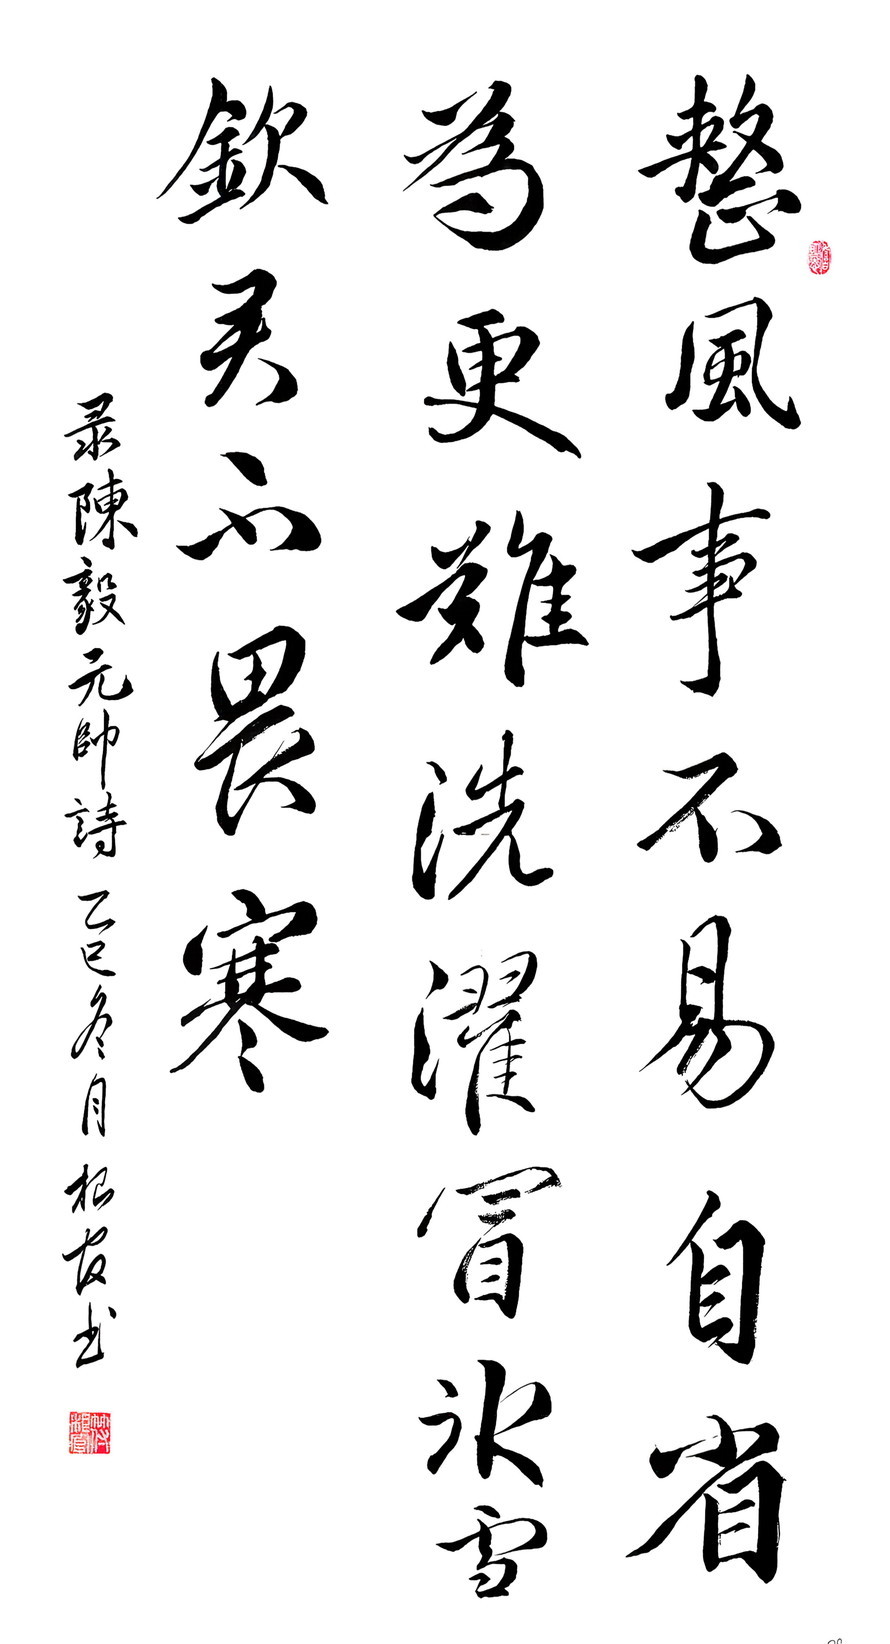 整風事不易自省
為更難洗濯冒冰雪
欽君不畏寒
录陳毅元帥詩乙巳冬月根友书